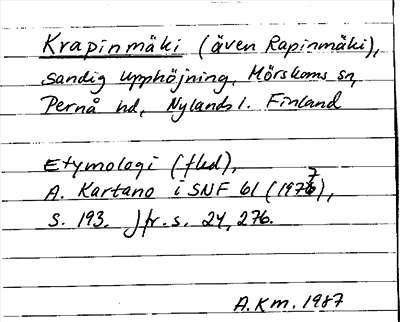 Krapinmäki (även Rapinmäki),
sandig upphöjning, Mörskoms sn,
Pernå hd, Nylands l. Finland
Etymologi (fled),
A. Kartano i SNF 61 (1977),
s. 193. Jfr. s. 24, 276.
A.Km. 1987